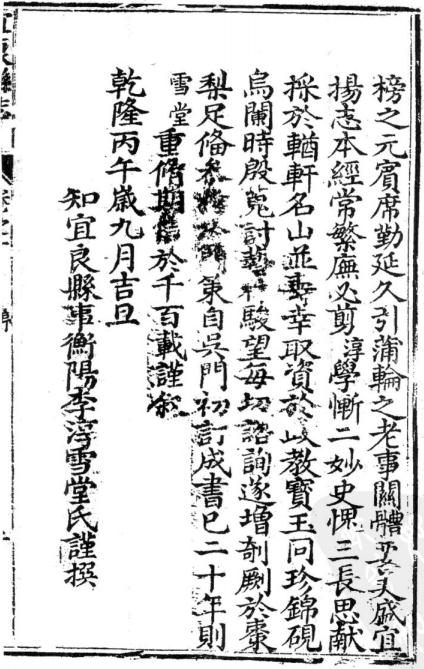 榜之元賓席勤延久引蒲輪之老事關體盛宜
揚志本經常繁蕪必剪淳學慚二妙史愧三長思献
採於輶軒名山並壽幸取資於教寶玉同珍錦硯
烏闌時啟蒐討藝駿望每切諮詢遂增剞劂於棗
梨足俻秉自吳門初訂成書已二十年則
雪堂重脩期於千百載謹叙
乾隆丙午歲九月吉旦
知宜良縣事衡陽李淳雪堂氏謹撰
宜良縣志